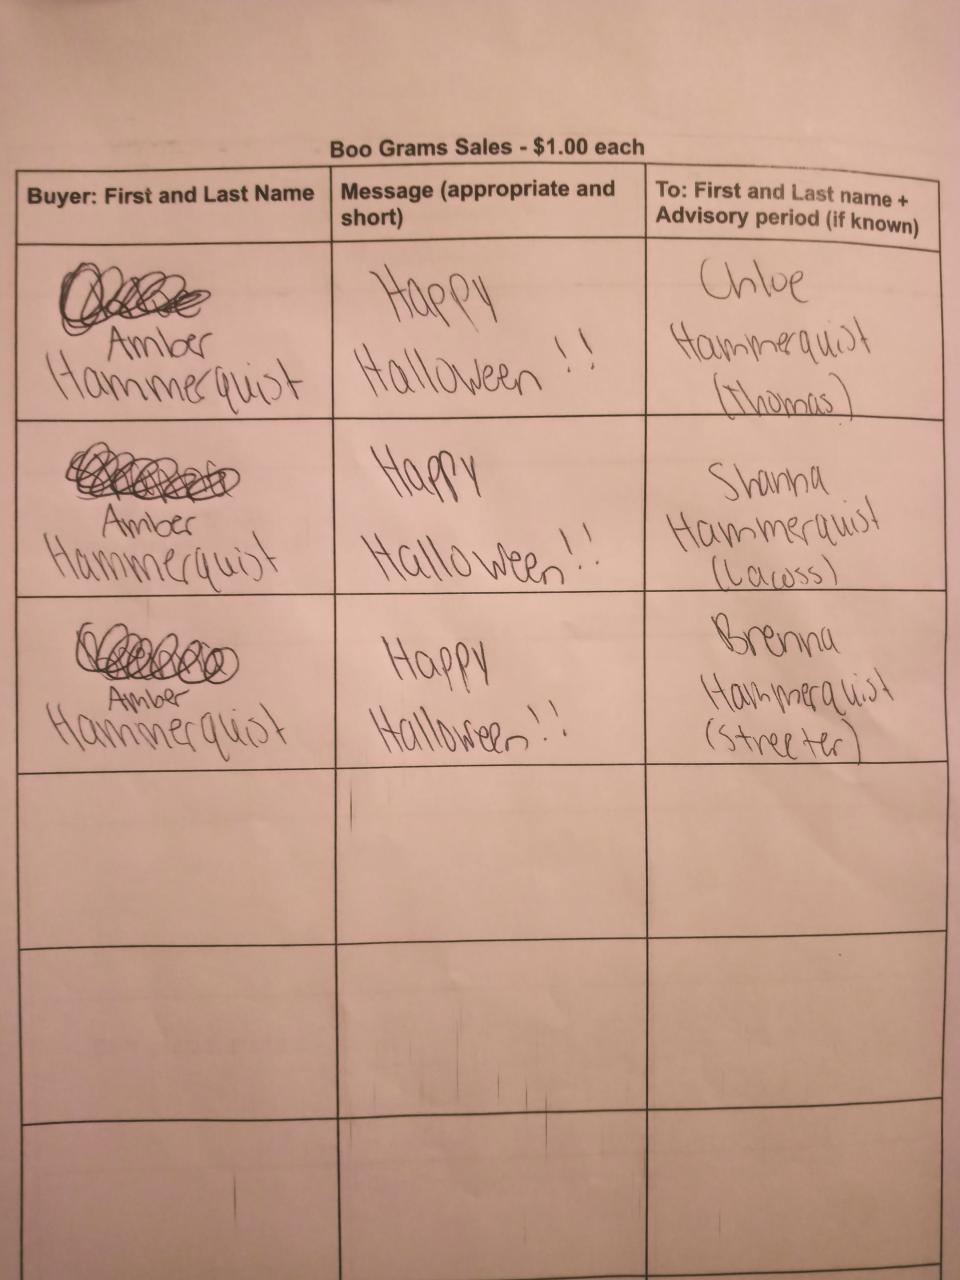 Boo Grams Sales - $1.00 each
Buyer: First and Last Name
Message (appropriate and
short)
To: First and Last name +
Advisory period (if known)
Amber
Hammerquist
Happy
Halloween!!
Chloe
Hammerquist
(Thomas)
Amber
Hammerquist
Happy
Halloween!!
Shanna
Hammerquist
(Lacoss)
Amber
Hammerquist
Happy
Halloween!!
Brenna
Hammerquist
(Streeter)